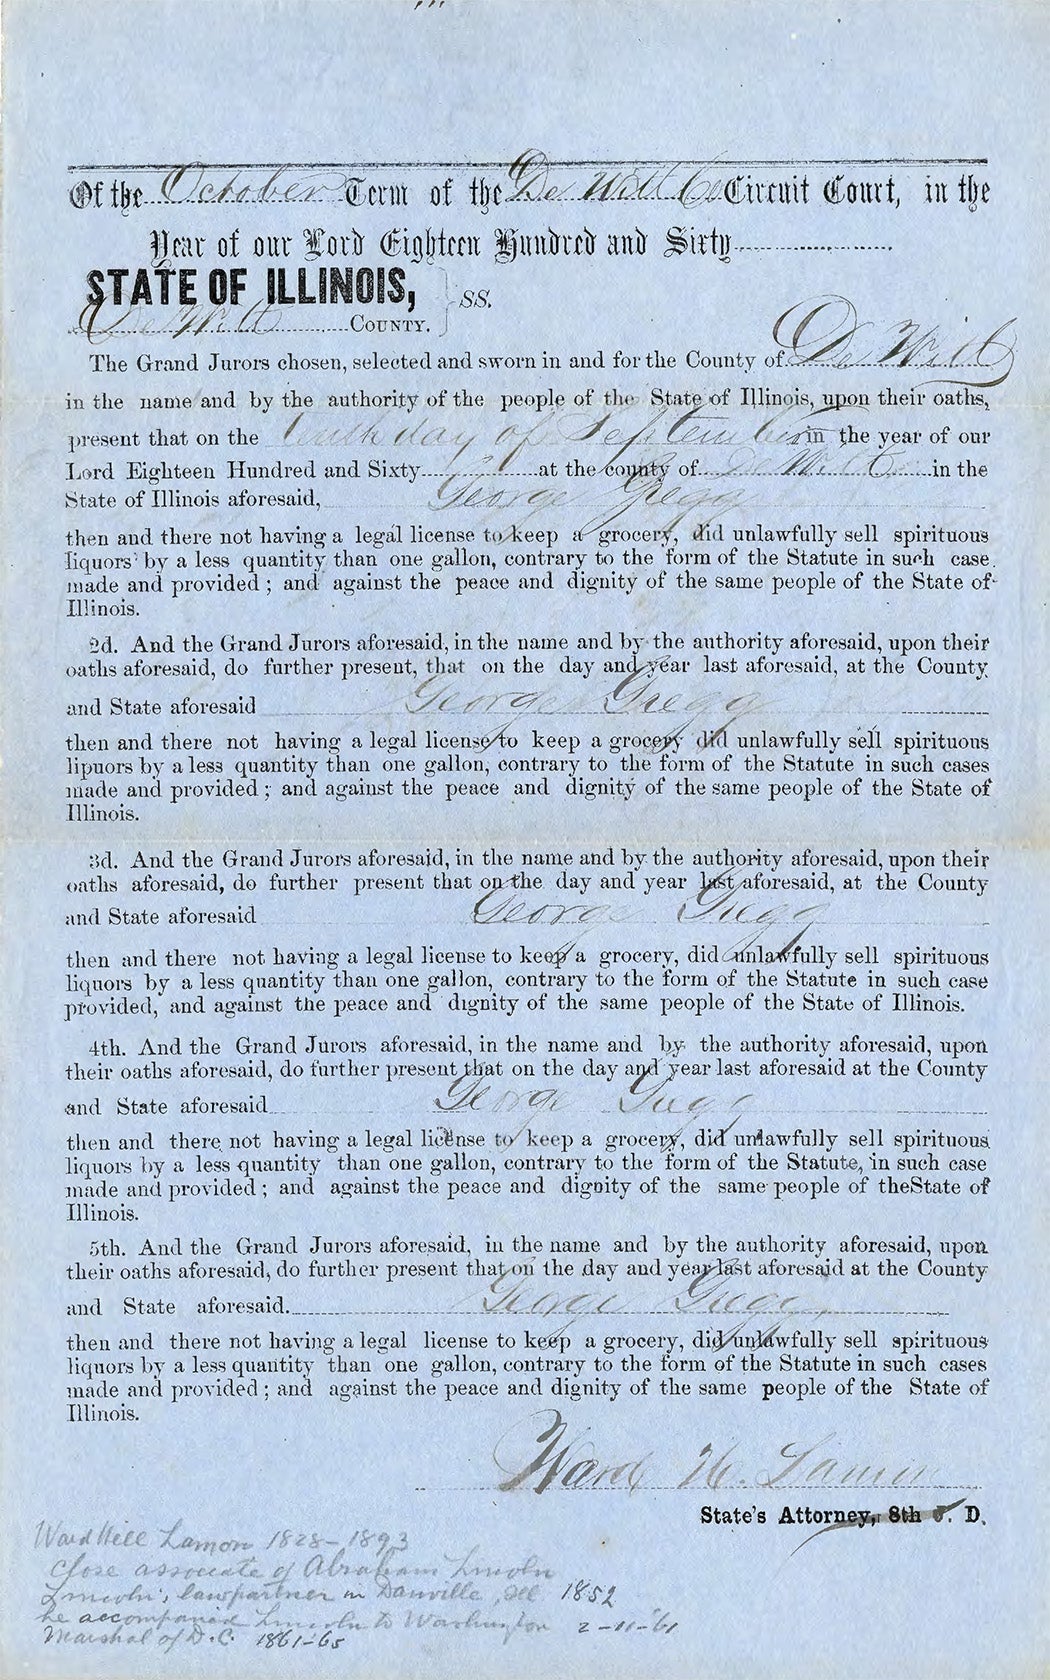 Of the October Term of the De Witt Co Circuit Court, in the
Year of our Lord Eighteen Hundred and Sixty
STATE OF ILLINOIS, } SS.
De Witt COUNTY.
The Grand Jurors chosen, selected and sworn in and for the County of De Witt
in the name and by the authority of the people of the State of Illinois, upon their oaths,
present that on the tenth day of September in the year of our
Lord Eighteen Hundred and Sixty at the county of De Witt in the
State of Illinois aforesaid, George Gregg
then and there not having a legal license to keep a grocery, did unlawfully sell spirituous
liquors by a less quantity than one gallon, contrary to the form of the Statute in such case
made and provided ; and against the peace and dignity of the same people of the State of
Illinois.
2d. And the Grand Jurors aforesaid, in the name and by the authority aforesaid, upon their
oaths aforesaid, do further present, that on the day and year last aforesaid, at the County
and State aforesaid George Gregg
then and there not having a legal license to keep a grocery did unlawfully sell spirituous
lipuors by a less quantity than one gallon, contrary to the form of the Statute in such cases
made and provided ; and against the peace and dignity of the same people of the State of
Illinois.
3d. And the Grand Jurors aforesaid, in the name and by the authority aforesaid, upon their
oaths aforesaid, do further present that on the day and year last aforesaid, at the County
and State aforesaid George Gregg
then and there not having a legal license to keep a grocery, did unlawfully sell spirituous
liquors by a less quantity than one gallon, contrary to the form of the Statute in such case
provided, and against the peace and dignity of the same people of the State of Illinois.
4th. And the Grand Jurors aforesaid, in the name and by the authority aforesaid, upon
their oaths aforesaid, do further present that on the day and year last aforesaid at the County
and State aforesaid George Gregg
then and there not having a legal license to keep a grocery, did unlawfully sell spirituous
liquors by a less quantity than one gallon, contrary to the form of the Statute, in such case
made and provided ; and against the peace and dignity of the same people of theState of
Illinois.
5th. And the Grand Jurors aforesaid, in the name and by the authority aforesaid, upon
their oaths aforesaid, do further present that on the day and year last aforesaid at the County
and State aforesaid. George Gregg,
then and there not having a legal license to keep a grocery, did unlawfully sell spirituous
liquors by a less quantity than one gallon, contrary to the form of the Statute in such cases
made and provided ; and against the peace and dignity of the same people of the State of
Illinois.
Ward H. Lamon
State's Attorney, 8th J. D.
Ward Hill Lamon 1828-1893
close associate of Abraham Lincoln
Lincoln's lawpartner in Danville, Ill 1852
he accompanied Lincoln to Washington 2-11-61
Marshal of D.C. 1861-65